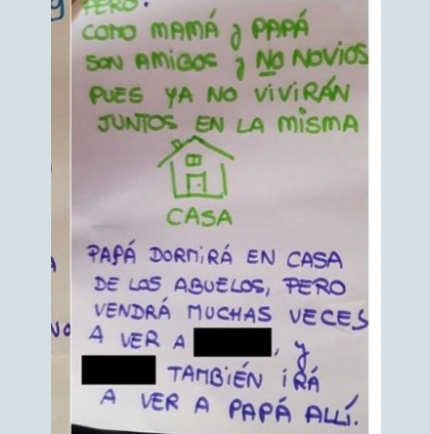 PERO:
COMO MAMÁ y PAPÁ
SON AMIGOS y NO NOVIOS
PUES YA NO VIVIRÁN
JUNTOS EN LA MISMA
CASA
PAPÁ DORMIRÁ EN CASA
DE LOS ABUELOS, PERO
VENDRÁ MUCHAS VECES
A VER A , y
TAMBIÉN IRÁ
A VER A PAPÁ ALLÍ.